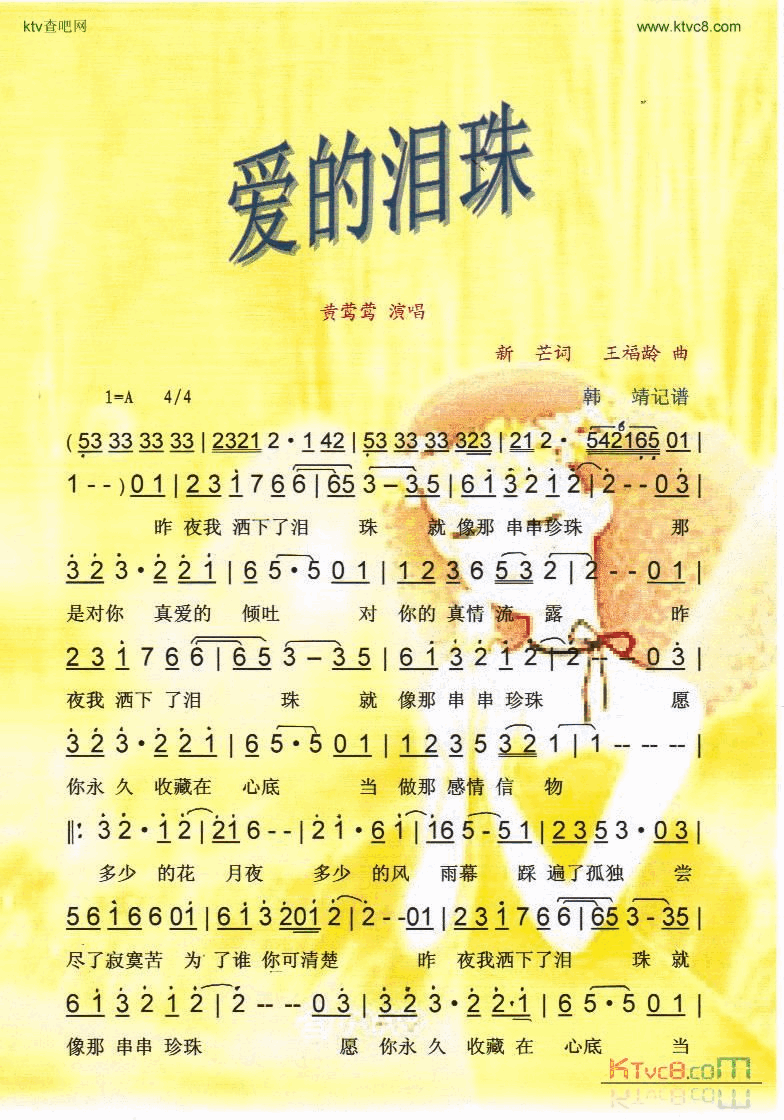 ktv查吧网 www.ktvc8.com
爱的泪珠
黄莺莺 演唱
新 芒词 王福龄 曲
1=A 4/4 韩 靖记谱
( 53 33 33 33 | 2321 2 · 1 42 | 53 33 33 323 | 21 2 · 542165 01 |
6
1 - - ) 0 1 | 2 3 1 7 6 6 | 6 5 3 – 3 5 | 6 1 3 2 1 2 | 2 - - 0 3 |
昨 夜我 洒下了泪 珠 就 像那 串串珍珠 那
3 2 3 · 2 2 1 | 6 5 · 5 0 1 | 1 2 3 6 5 3 2 | 2 - - 0 1 |
是对你 真爱的 倾吐 对 你的 真情 流 露 昨
2 3 1 7 6 6 | 6 5 3 – 3 5 | 6 1 3 2 1 2 | 2 - - 0 3 |
夜我 洒下 了泪 珠 就 像那 串 串 珍珠 愿
3 2 3 · 2 2 1 | 6 5 · 5 0 1 | 1 2 3 5 3 2 1 | 1 -- -- -- |
你永 久 收藏在 心底 当 做那 感情 信 物
‖: 3 2 · 1 2 | 2 1 6 - - | 2 1 · 6 1 | 1 6 5 - 5 1 | 2 3 5 3 · 0 |
多少 的花 月夜 多少 的风 雨幕 踩 遍了孤独 尝
5 6 1 6 6 01 | 6 1 3 201 2 | 2 - - 01 | 2 3 1 7 6 6 | 65 3 - 35 |
尽了寂寞苦 为 了谁 你可清楚 昨 夜我洒下了泪 珠 就
6 1 3 2 1 2 | 2 -- -- 0 3 | 3 2 3 · 2 2 · 1 | 6 5 · 5 0 1 |
像那 串串 珍珠 愿 你永 久 收藏 在 心底 当
KTvc8.com